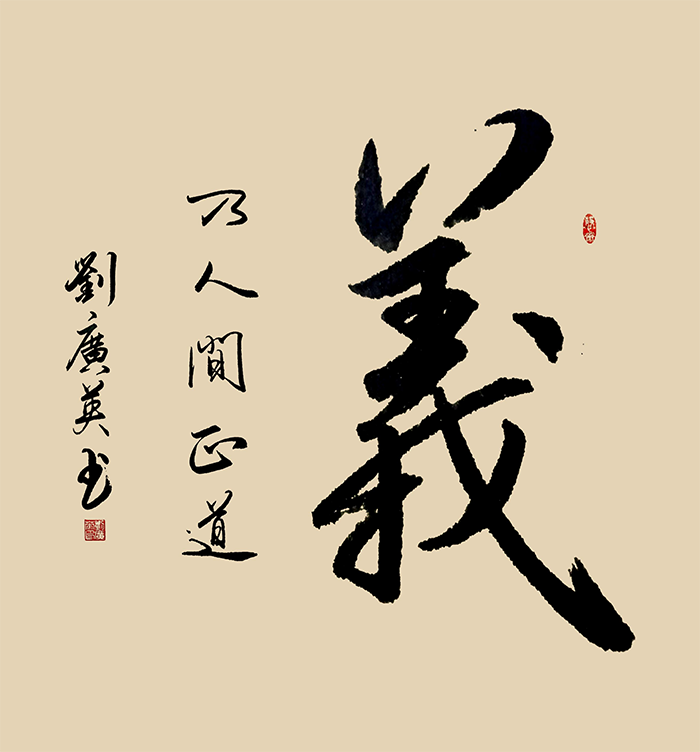 義
乃人間正道
劉廣英书